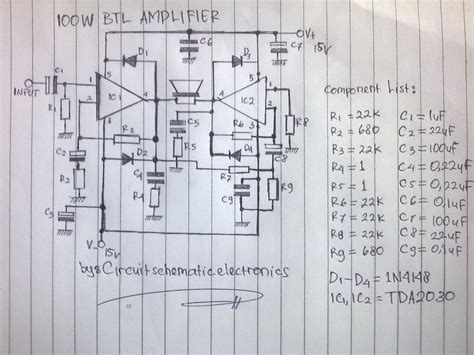 100W BTL AMPLIFIER
D1
C6
D3
V+
C7 15V
C1
INPUT
5
1
IC1
4
2
3
R1
5
4
IC2
1
2
3
R8
C5
R3
R6
C2
D2
R5
D4
C8
R2
C4
R7
R4
C9
R9
C3
V- 15V
by: Circuitschematicelectronics
Component List:
R1 = 22K C1 = 1uF
R2 = 680 C2 = 22uF
R3 = 22K C3 = 100uF
R4 = 1 C4 = 0,22uF
R5 = 1 C5 = 0,22uF
R6 = 22K C6 = 0,1uF
R7 = 22K C7 = 100uF
R8 = 22K C8 = 22uF
R9 = 680 C9 = 0,1uF
D1-D4 = 1N4148
IC1, IC2 = TDA2030